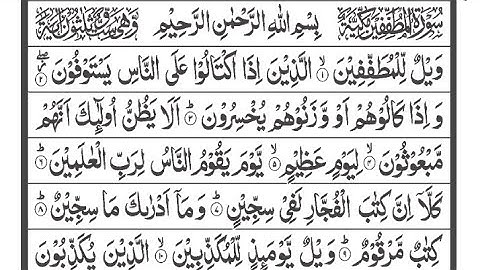 سُوْرَةُ الْمُطَفِّفِيْنَ مَكِّيَّةٌ بِسْمِ اللهِ الرَّحْمٰنِ الرَّحِيْمِ وَّهِيَ سِتٌّ وَّثَلٰثُوْنَ اٰيَةً
وَيْلٌ لِّلْمُطَفِّفِيْنَ ۙ۱ الَّذِيْنَ اِذَا اكْتَالُوْا عَلَى النَّاسِ يَسْتَوْفُوْنَ ۲
وَ اِذَا كَالُوْهُمْ اَوْ وَّزَنُوْهُمْ يُخْسِرُوْنَ ۳ اَلَا يَظُنُّ اُولٰٓئِكَ اَنَّهُمْ
مَّبْعُوْثُوْنَ ۙ۴ لِيَوْمٍ عَظِيْمٍ ۙ۵ يَّوْمَ يَقُوْمُ النَّاسُ لِرَبِّ الْعٰلَمِيْنَ ۶
كَلَّاۤ اِنَّ كِتٰبَ الْفُجَّارِ لَفِيْ سِجِّيْنٍ ۷ وَ مَاۤ اَدْرٰىكَ مَا سِجِّيْنٌ ۸
كِتٰبٌ مَّرْقُوْمٌ ۹ وَيْلٌ يَّوْمَىِٕذٍ لِّلْمُكَذِّبِيْنَ ۙ۱۰ الَّذِيْنَ يُكَذِّبُوْنَ